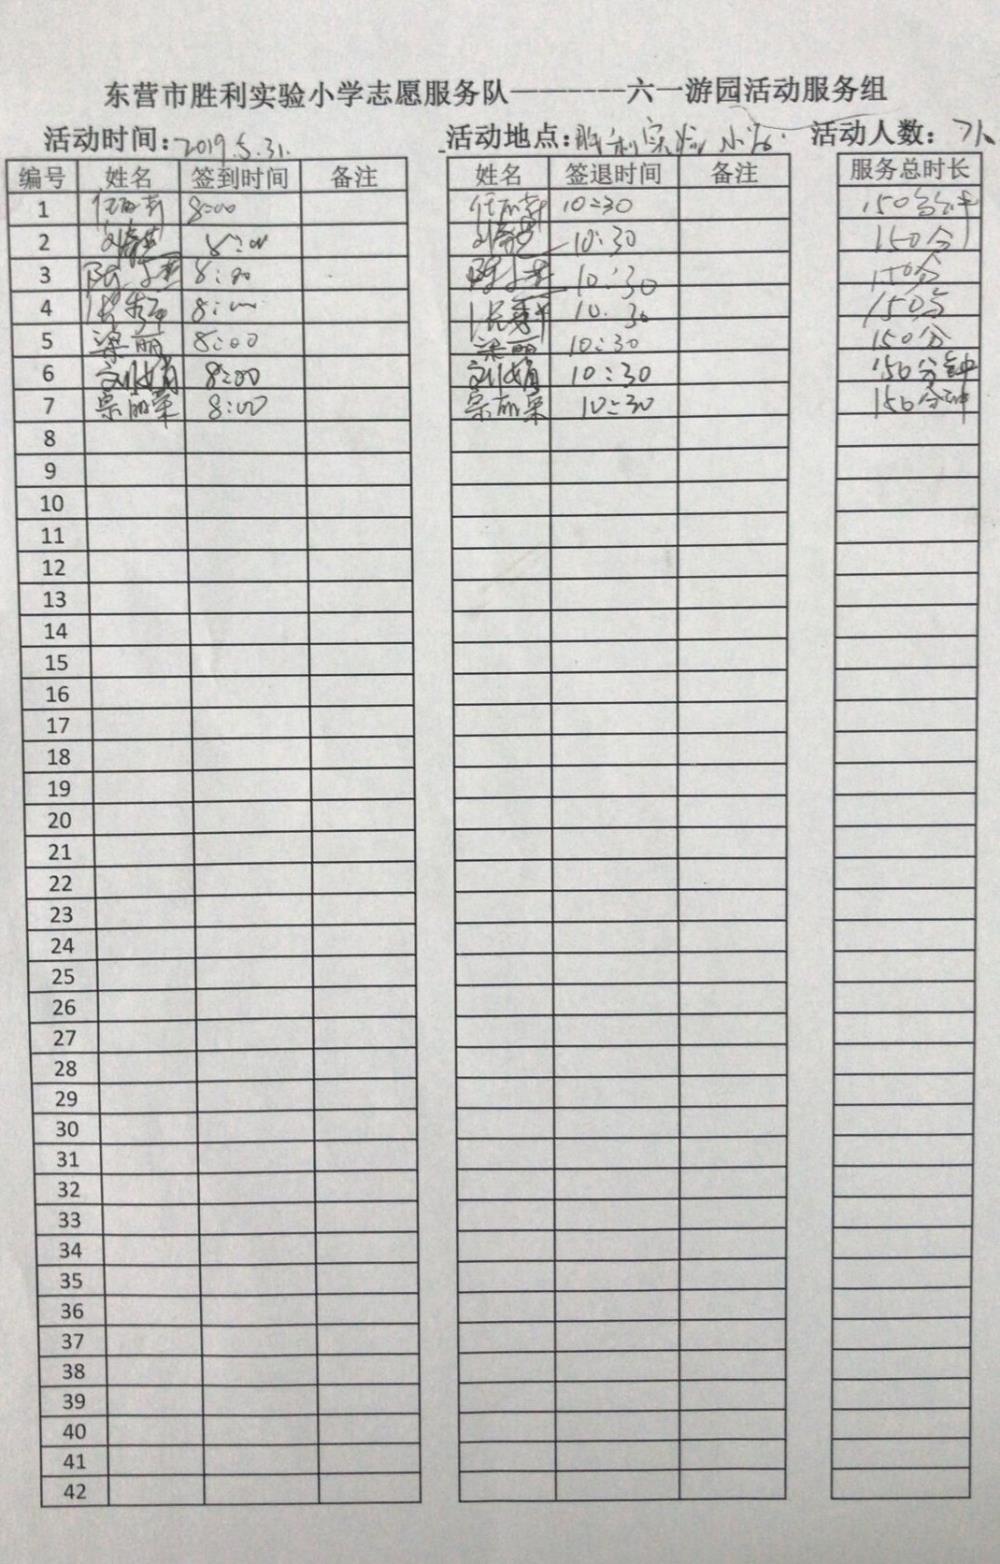 东营市胜利实验小学志愿服务队————六一游园活动服务组
活动时间：2019.5.31. 活动地点：胜利实验小学 活动人数：7人
编号 姓名 签到时间 备注 姓名 签退时间 备注 服务总时长
1 8:00 10:30 150分钟
2 8:00 10:30 150分
3 8:00 10:30 150分
4 8:00 10:30 150分
5 梁丽 8:00 梁丽 10:30 150分
6 刘娟 8:00 刘娟 10:30 150分钟
7 宗丽荣 8:00 宗丽荣 10:30 150分钟
8
9
10
11
12
13
14
15
16
17
18
19
20
21
22
23
24
25
26
27
28
29
30
31
32
33
34
35
36
37
38
39
40
41
42